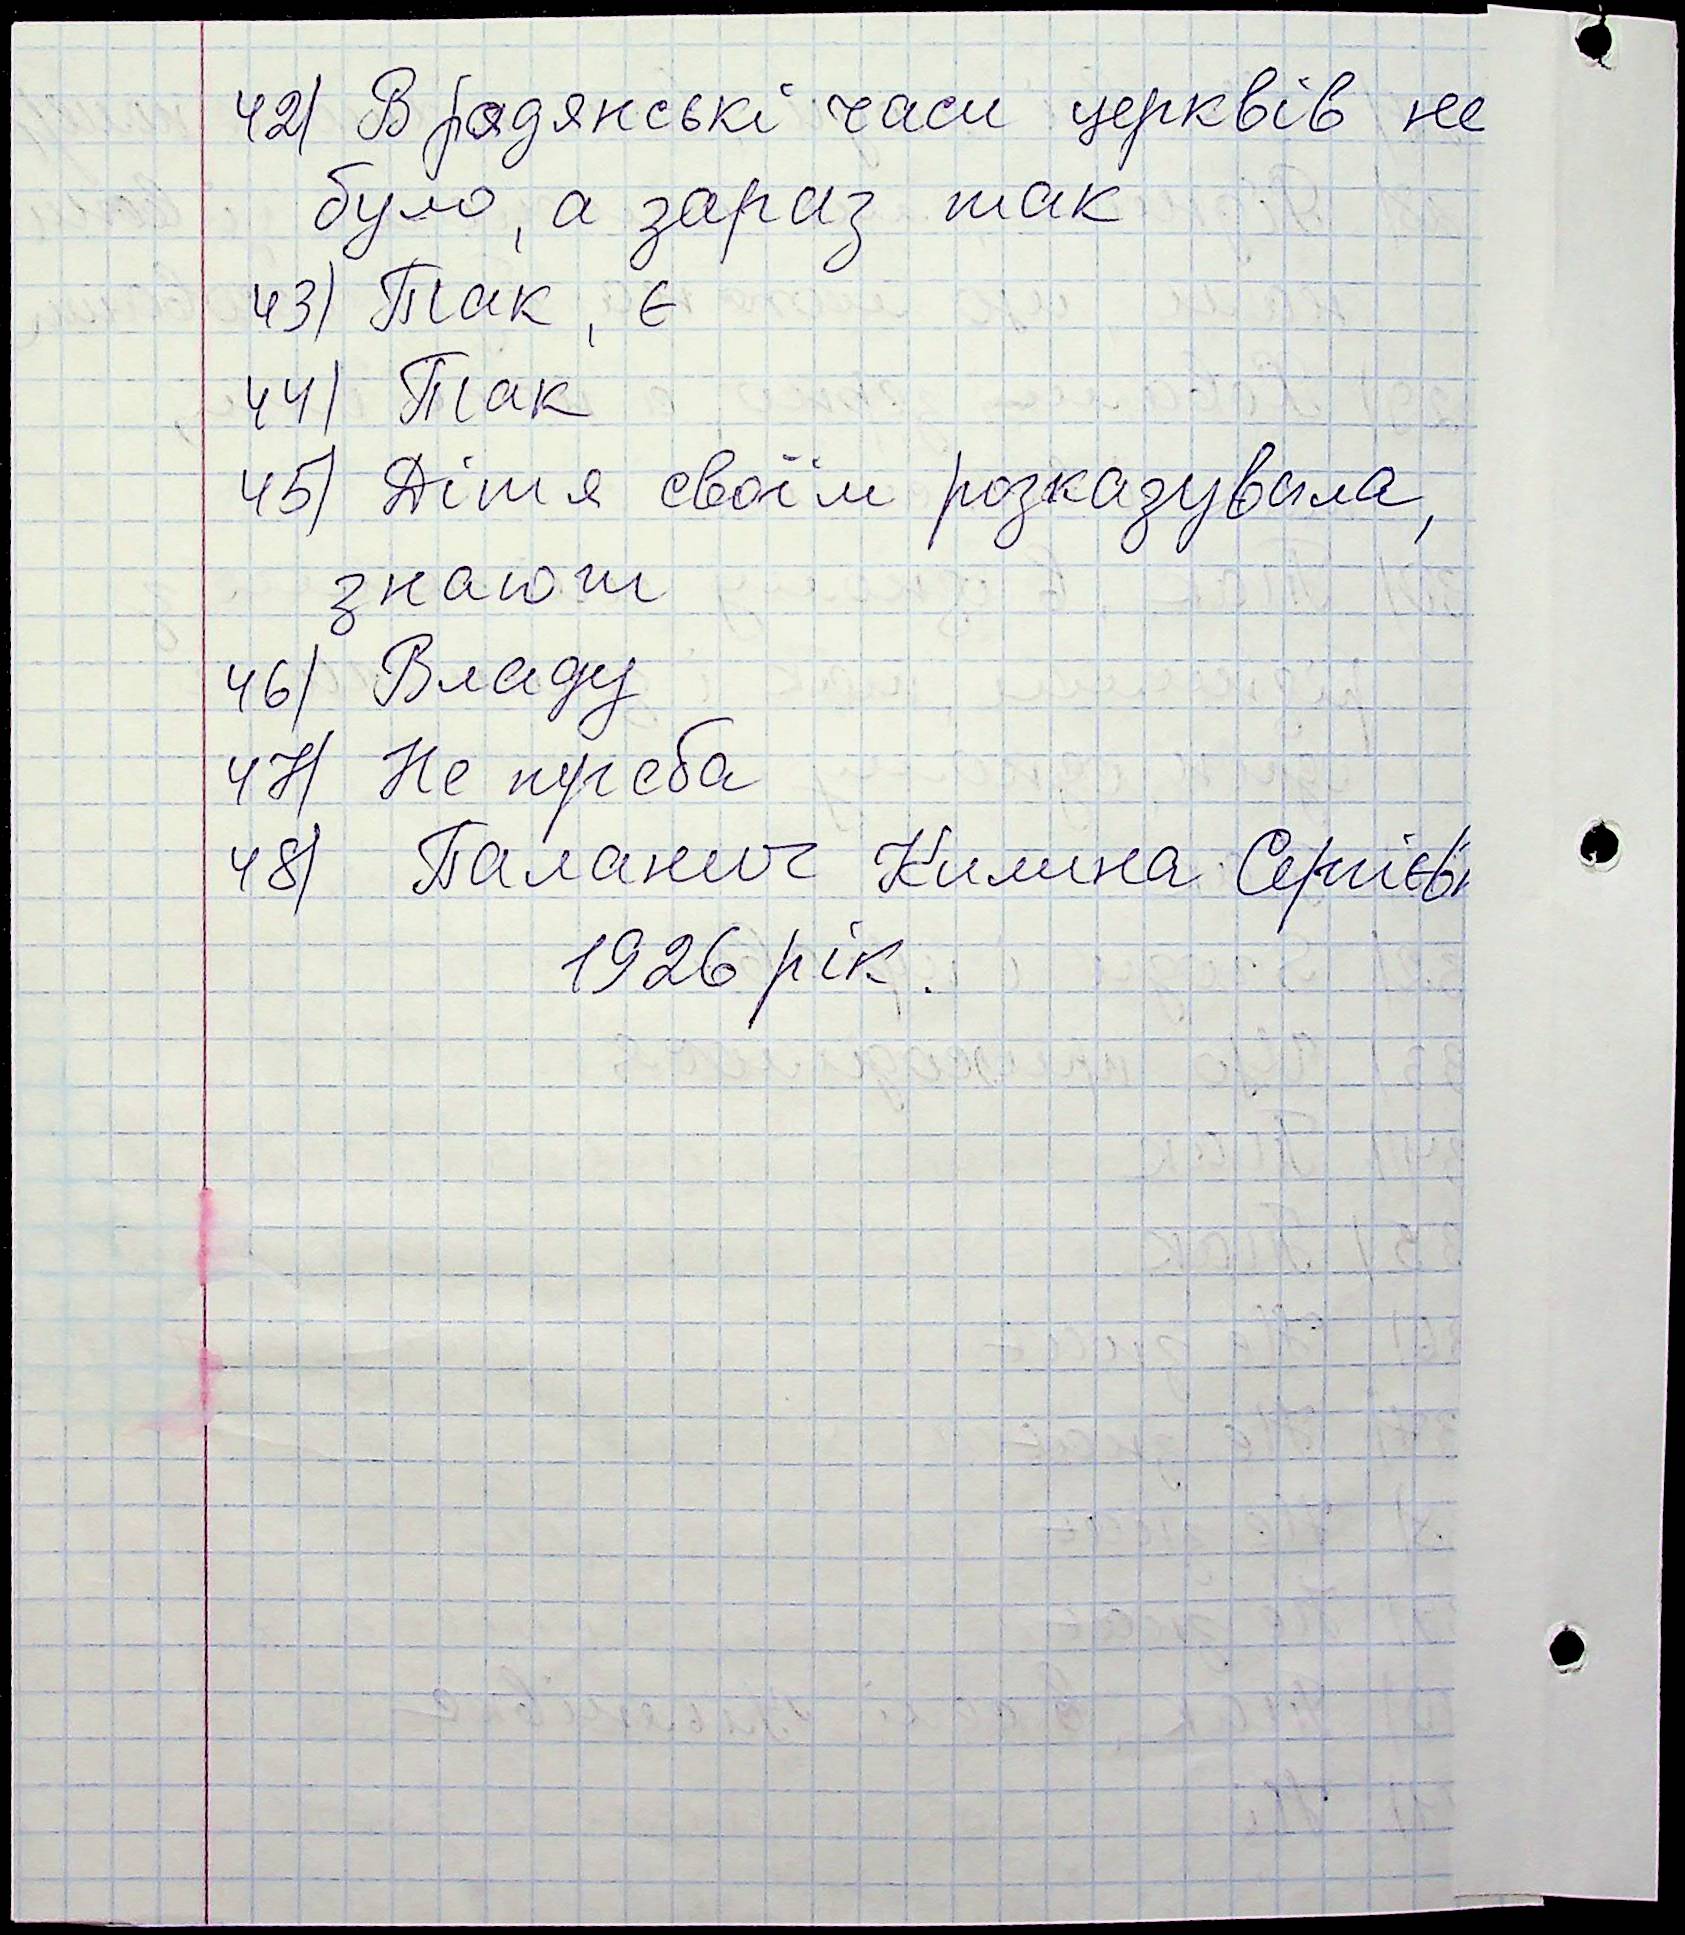 42) В радянські часи церквів не
було, а зараз так
43) Так, є
44) Так
45) Дітя своїм розказувала,
знають
46) Владу
47) Не треба
48) Паланич Килина Сергієвн
1926 рік.